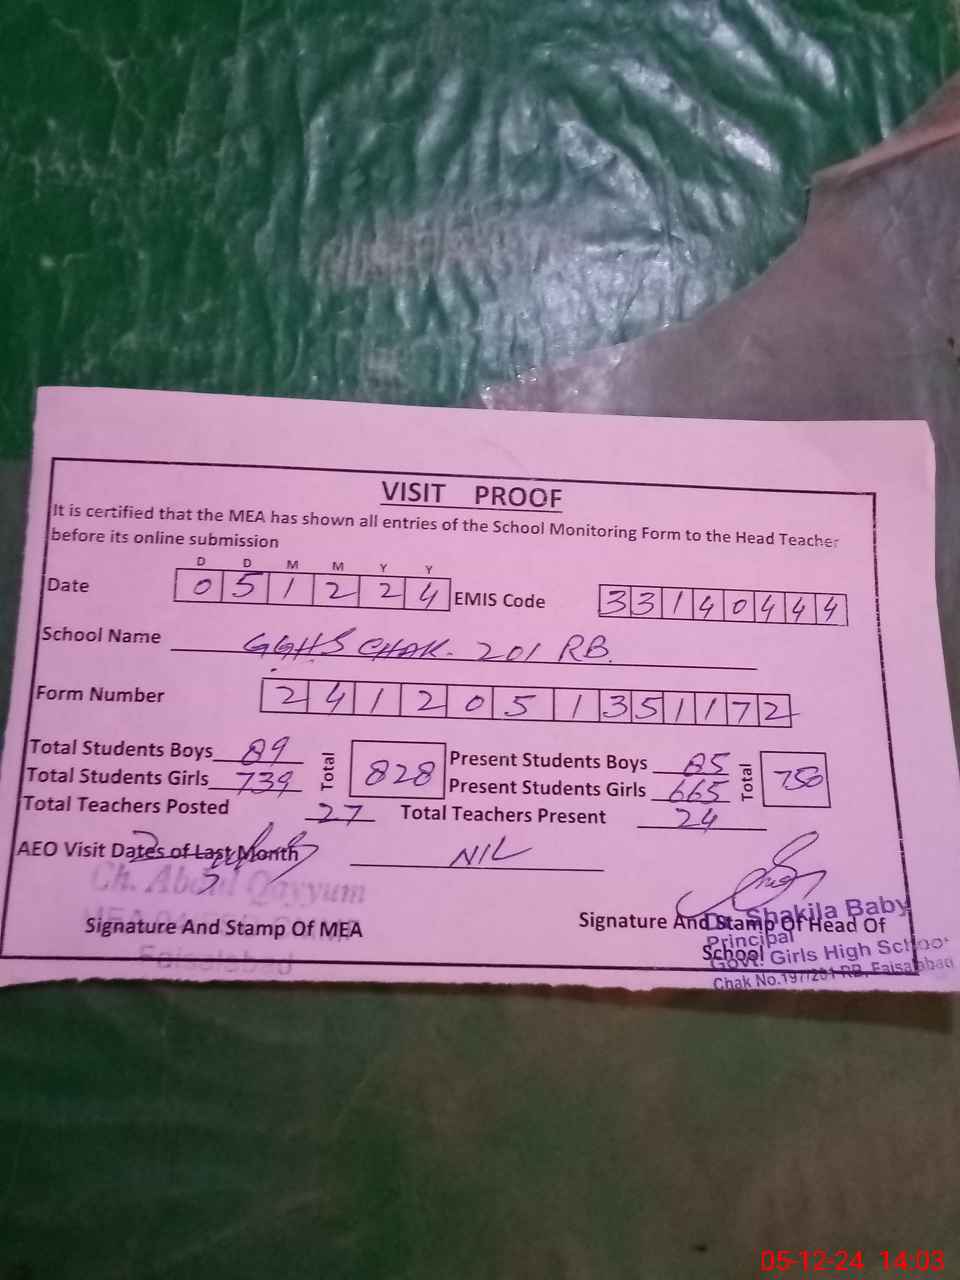 VISIT PROOF
It is certified that the MEA has shown all entries of the School Monitoring Form to the Head Teacher
before its online submission
D D M M Y Y
Date 0 5 1 2 2 4 EMIS Code 3 3 1 4 0 4 4 4
School Name GGHS CHAK. 201 RB.
Form Number 2 4 1 2 0 5 1 3 5 1 1 7 2
Total Students Boys 89 Total 828 Present Students Boys 85 Total 750
Total Students Girls 739 Present Students Girls 665
Total Teachers Posted 27 Total Teachers Present 24
AEO Visit Dates of Last Month NIL
Ch. Abdul Qayyum
Signature And Stamp Of MEA
Faisalabad
Shakila Baby
Signature And Stamp Of Head Of
Principal
School
Govt. Girls High School
Chak No.197/201 RB, Faisalabad
05-12-24 14:03